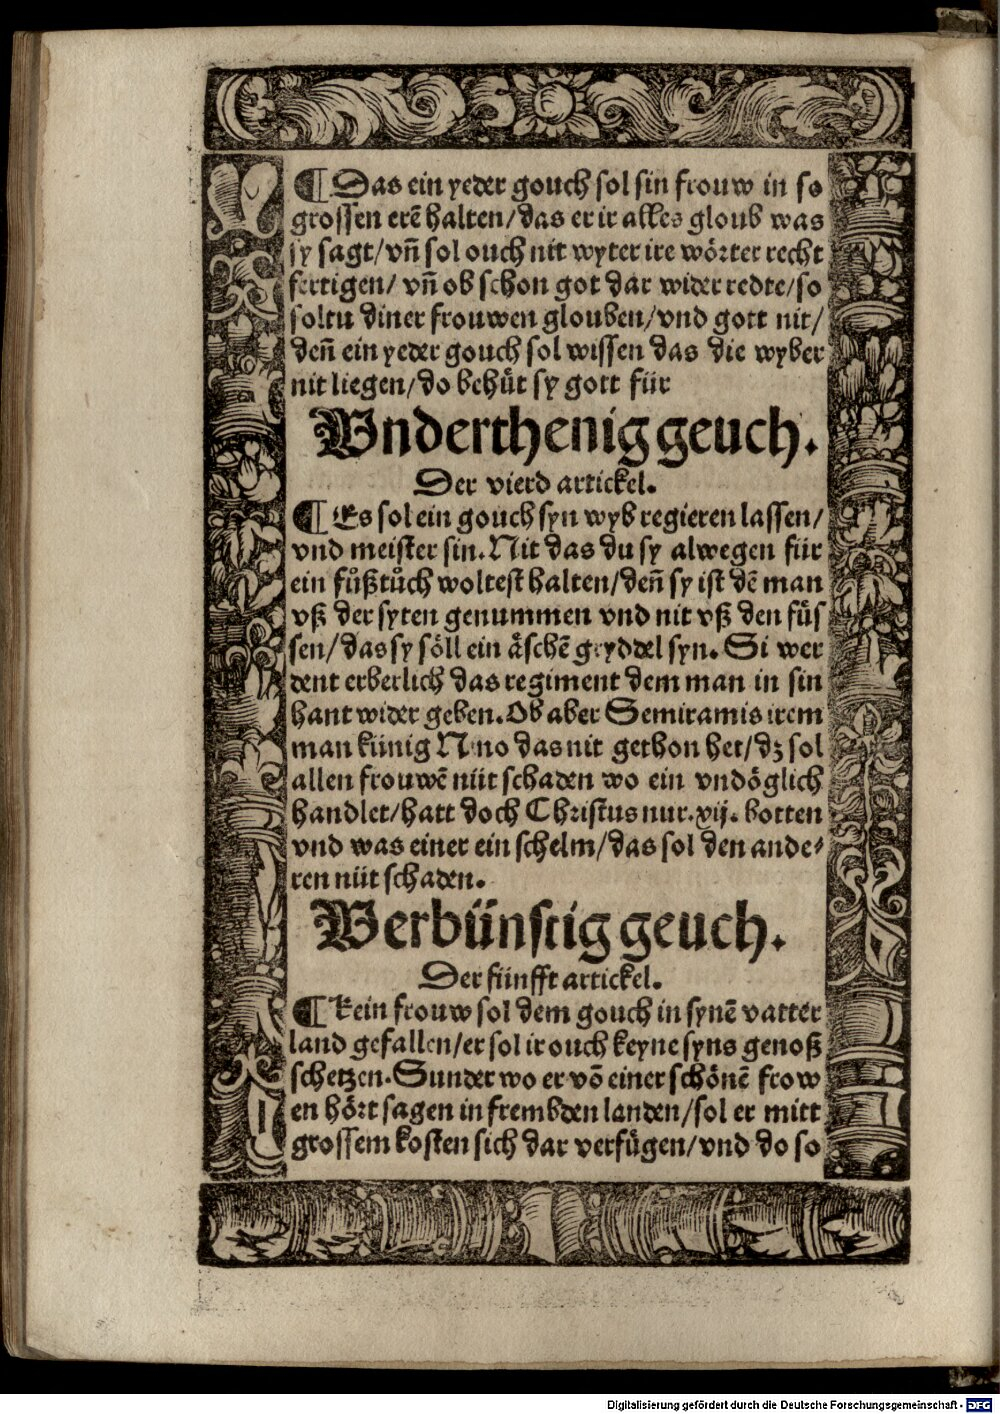 ¶ Das ein yeder gouch sol sin frouw in so
grossen erẽ halten/das er ir alles gloub was
sy sagt/vñ sol ouch nit wyter ire wörter recht
fertigen/ vñ ob schon got dar wider redte/so
soltu diner frouwen glouben/vnd gott nit/
deñ ein yeder gouch sol wissen das die wyber
nit liegen/do behüt sy gott für
Vnderthenig geuch.
Der vierd artickel.
¶ Es sol ein gouch syn wyb regieren lassen/
vnd meister sin. Nit das du sy alwegen für
ein fůßtůch woltest halten/deñ sy ist dẽ man
vß der syten genummen vnd nit vß den füs
sen/das sy söll ein äschẽ gryddel syn. Si wer
dent erberlich das regiment dem man in sin
hant wider geben. Ob aber Semiramis irem
man künig Nino das nit gethon het/dz sol
allen frouwẽ nüt schaden wo ein vndöglich
handlet/hatt doch Christus nur .xij. botten
vnd was einer ein schelm/das sol den ande⸗
ren nüt schaden.
Verbünstig geuch.
Der fünfft artickel.
¶ Kein frouw sol dem gouch in synẽ vatter
land gefallen/er sol ir ouch keyne syns genoß
schetzen. Sunder wo er võ einer schönẽ frow
en hört sagen in frembden landen/sol er mitt
grossem kosten sich dar verfügen/vnd do so
Digitalisierung gefördert durch die Deutsche Forschungsgemeinschaft - DFG